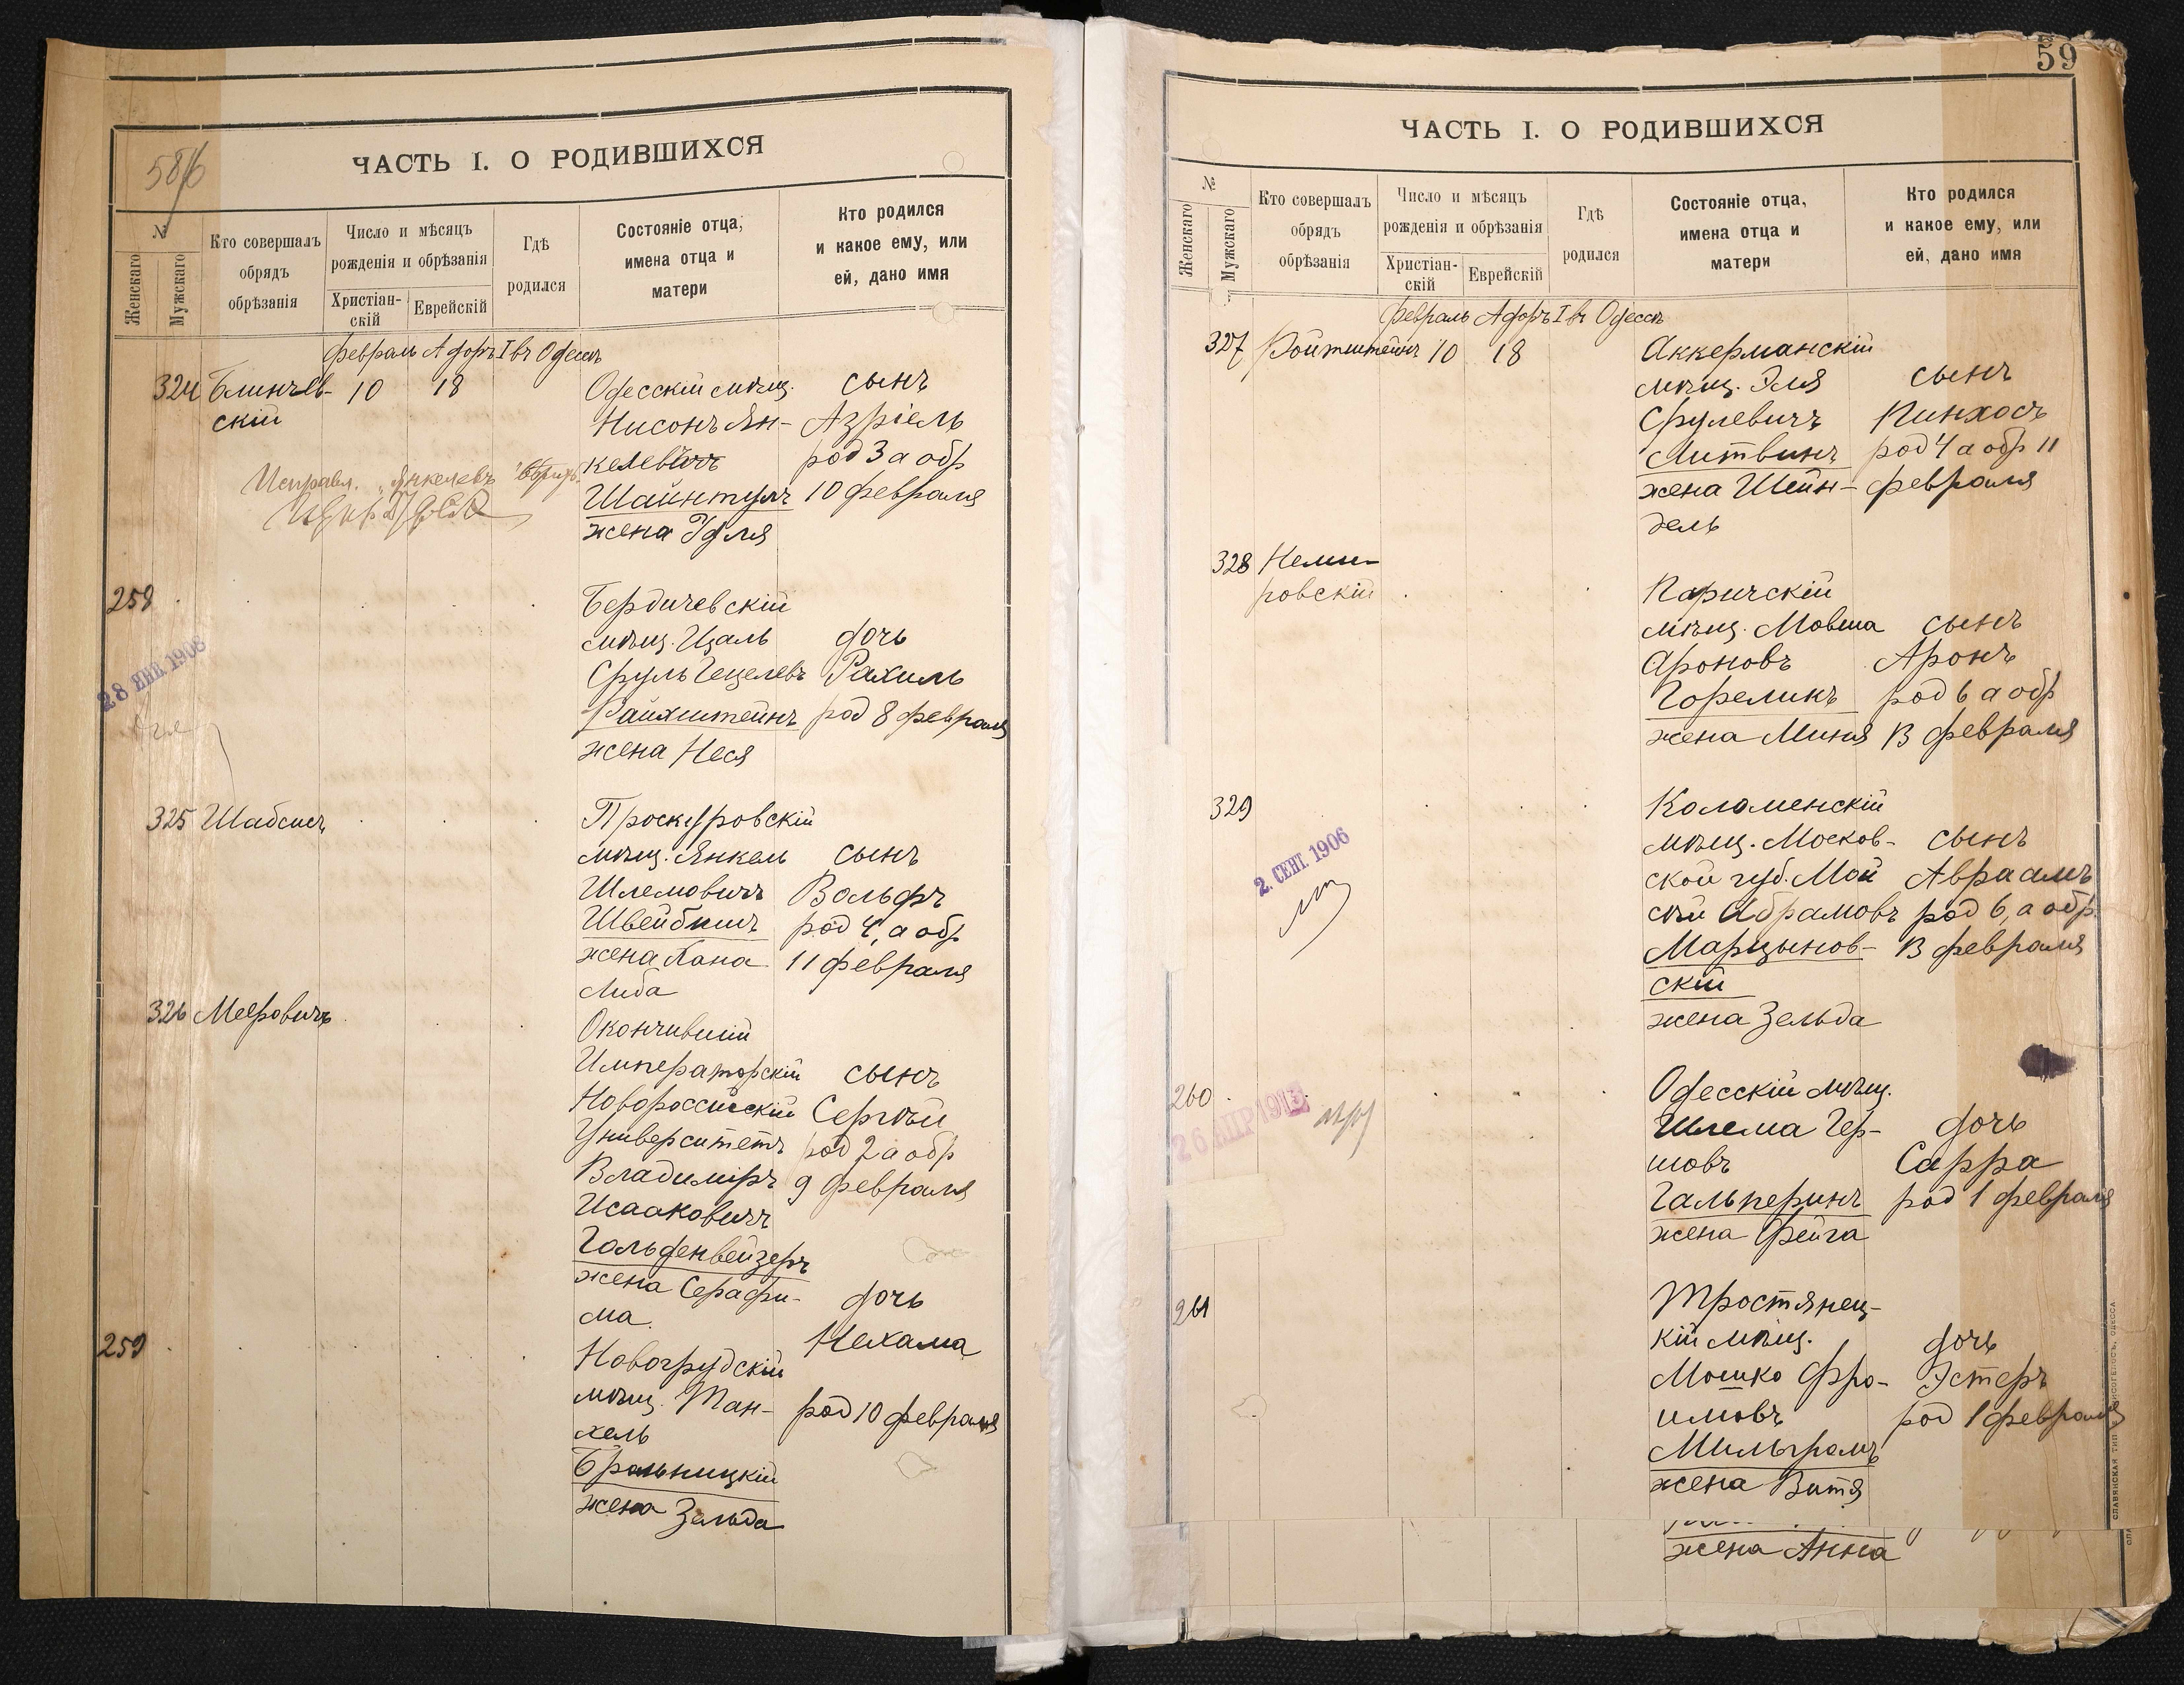 58/б
ЧАСТЬ I. О РОДИВШИХСЯ
№
Женскаго
Мужскаго
Кто совершалъ
обрядъ
обрѣзанія
Число и мѣсяцъ
рожденія и обрѣзанія
Христіан-
скій
Еврейскій
Гдѣ
родился
Состояніе отца,
имена отца и
матери
Кто родился
и какое ему, или
ей, дано имя
Февраль Адоръ I въ Одессѣ
324 Блинчев-
скій
10
18
Одесскій мѣщ.
Нисонъ Ян-
келевичъ
Шайнтулъ
жена Эдля
сынъ
Азріель
род 3 а обр
10 февраля
Исправл. "Янкелевъ"
258
28 ЯНВ. 1908
Бердичевскій
мѣщ. Цаль
Сруль Гецелевъ
Райхштейнъ
жена Неся
дочь
Рахиль
род 8 февраля
325 Шабсисъ
Проскуровскій
мѣщ. Янкель
Шлемовичъ
Швейбишъ
жена Хана
Либа
сынъ
Вольфъ
род 4, а обр
11 февраля
326 Мееровичъ
Окончившій
Императорскій
Новороссійскій
Университетъ
Владиміръ
Исааковичъ
Гольденвейзеръ
жена Серафи-
ма.
сынъ
Сергѣй
род 2 а обр
9 февраля
259
Новогрудскій
мѣщ. Тан-
хель
Брольницкій
жена Зельда
дочь
Нехама
род 10 февраля
59
ЧАСТЬ I. О РОДИВШИХСЯ
№
Женскаго
Мужскаго
Кто совершалъ
обрядъ
обрѣзанія
Число и мѣсяцъ
рожденія и обрѣзанія
Христіан-
скій
Еврейскій
Гдѣ
родился
Состояніе отца,
имена отца и
матери
Кто родился
и какое ему, или
ей, дано имя
Февраль Адоръ I въ Одессѣ
327 Ройтштейнъ 10 18
Аккерманскій
мѣщ. Эля
Срулевичъ
Литвинъ
жена Шейн-
дель
сынъ
Пинхосъ
род 4 а обр 11
февраля
328 Неми-
ровскій
Паричскій
мѣщ. Мовша
Ароновъ
Гореликъ
жена Миня
сынъ
Аронъ
род 6 а обр
13 февраля
329
2. СЕНТ. 1906
Коломенскій
мѣщ. Москов-
ской губ. Мои
сѣй Абрамовъ
Марцынов-
скій
жена Зельда
сынъ
Авраамъ
род 6, а обр
13 февраля
260
26 АПР 1913
Одесскій мѣщ.
Шлема Гер-
шовъ
Гальперинъ
жена Фейга
дочь
Сарра
род 1 февраля
261
Тростянец-
кій мѣщ.
Мошко Фро-
имовъ
Мильграмъ
жена Витя
дочь
Эстеръ
род 1 февраля
жена Анна